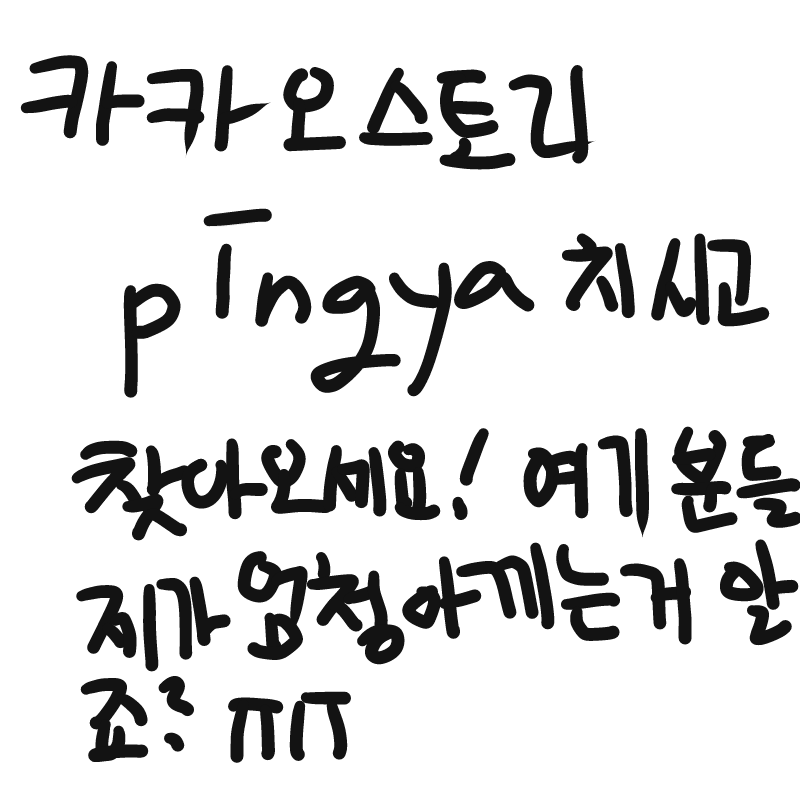 카카오스토리
pingya 치시고
찾아오세요! 여기분들
제가 엄청아께는거 알
죠? ㅠㅠ